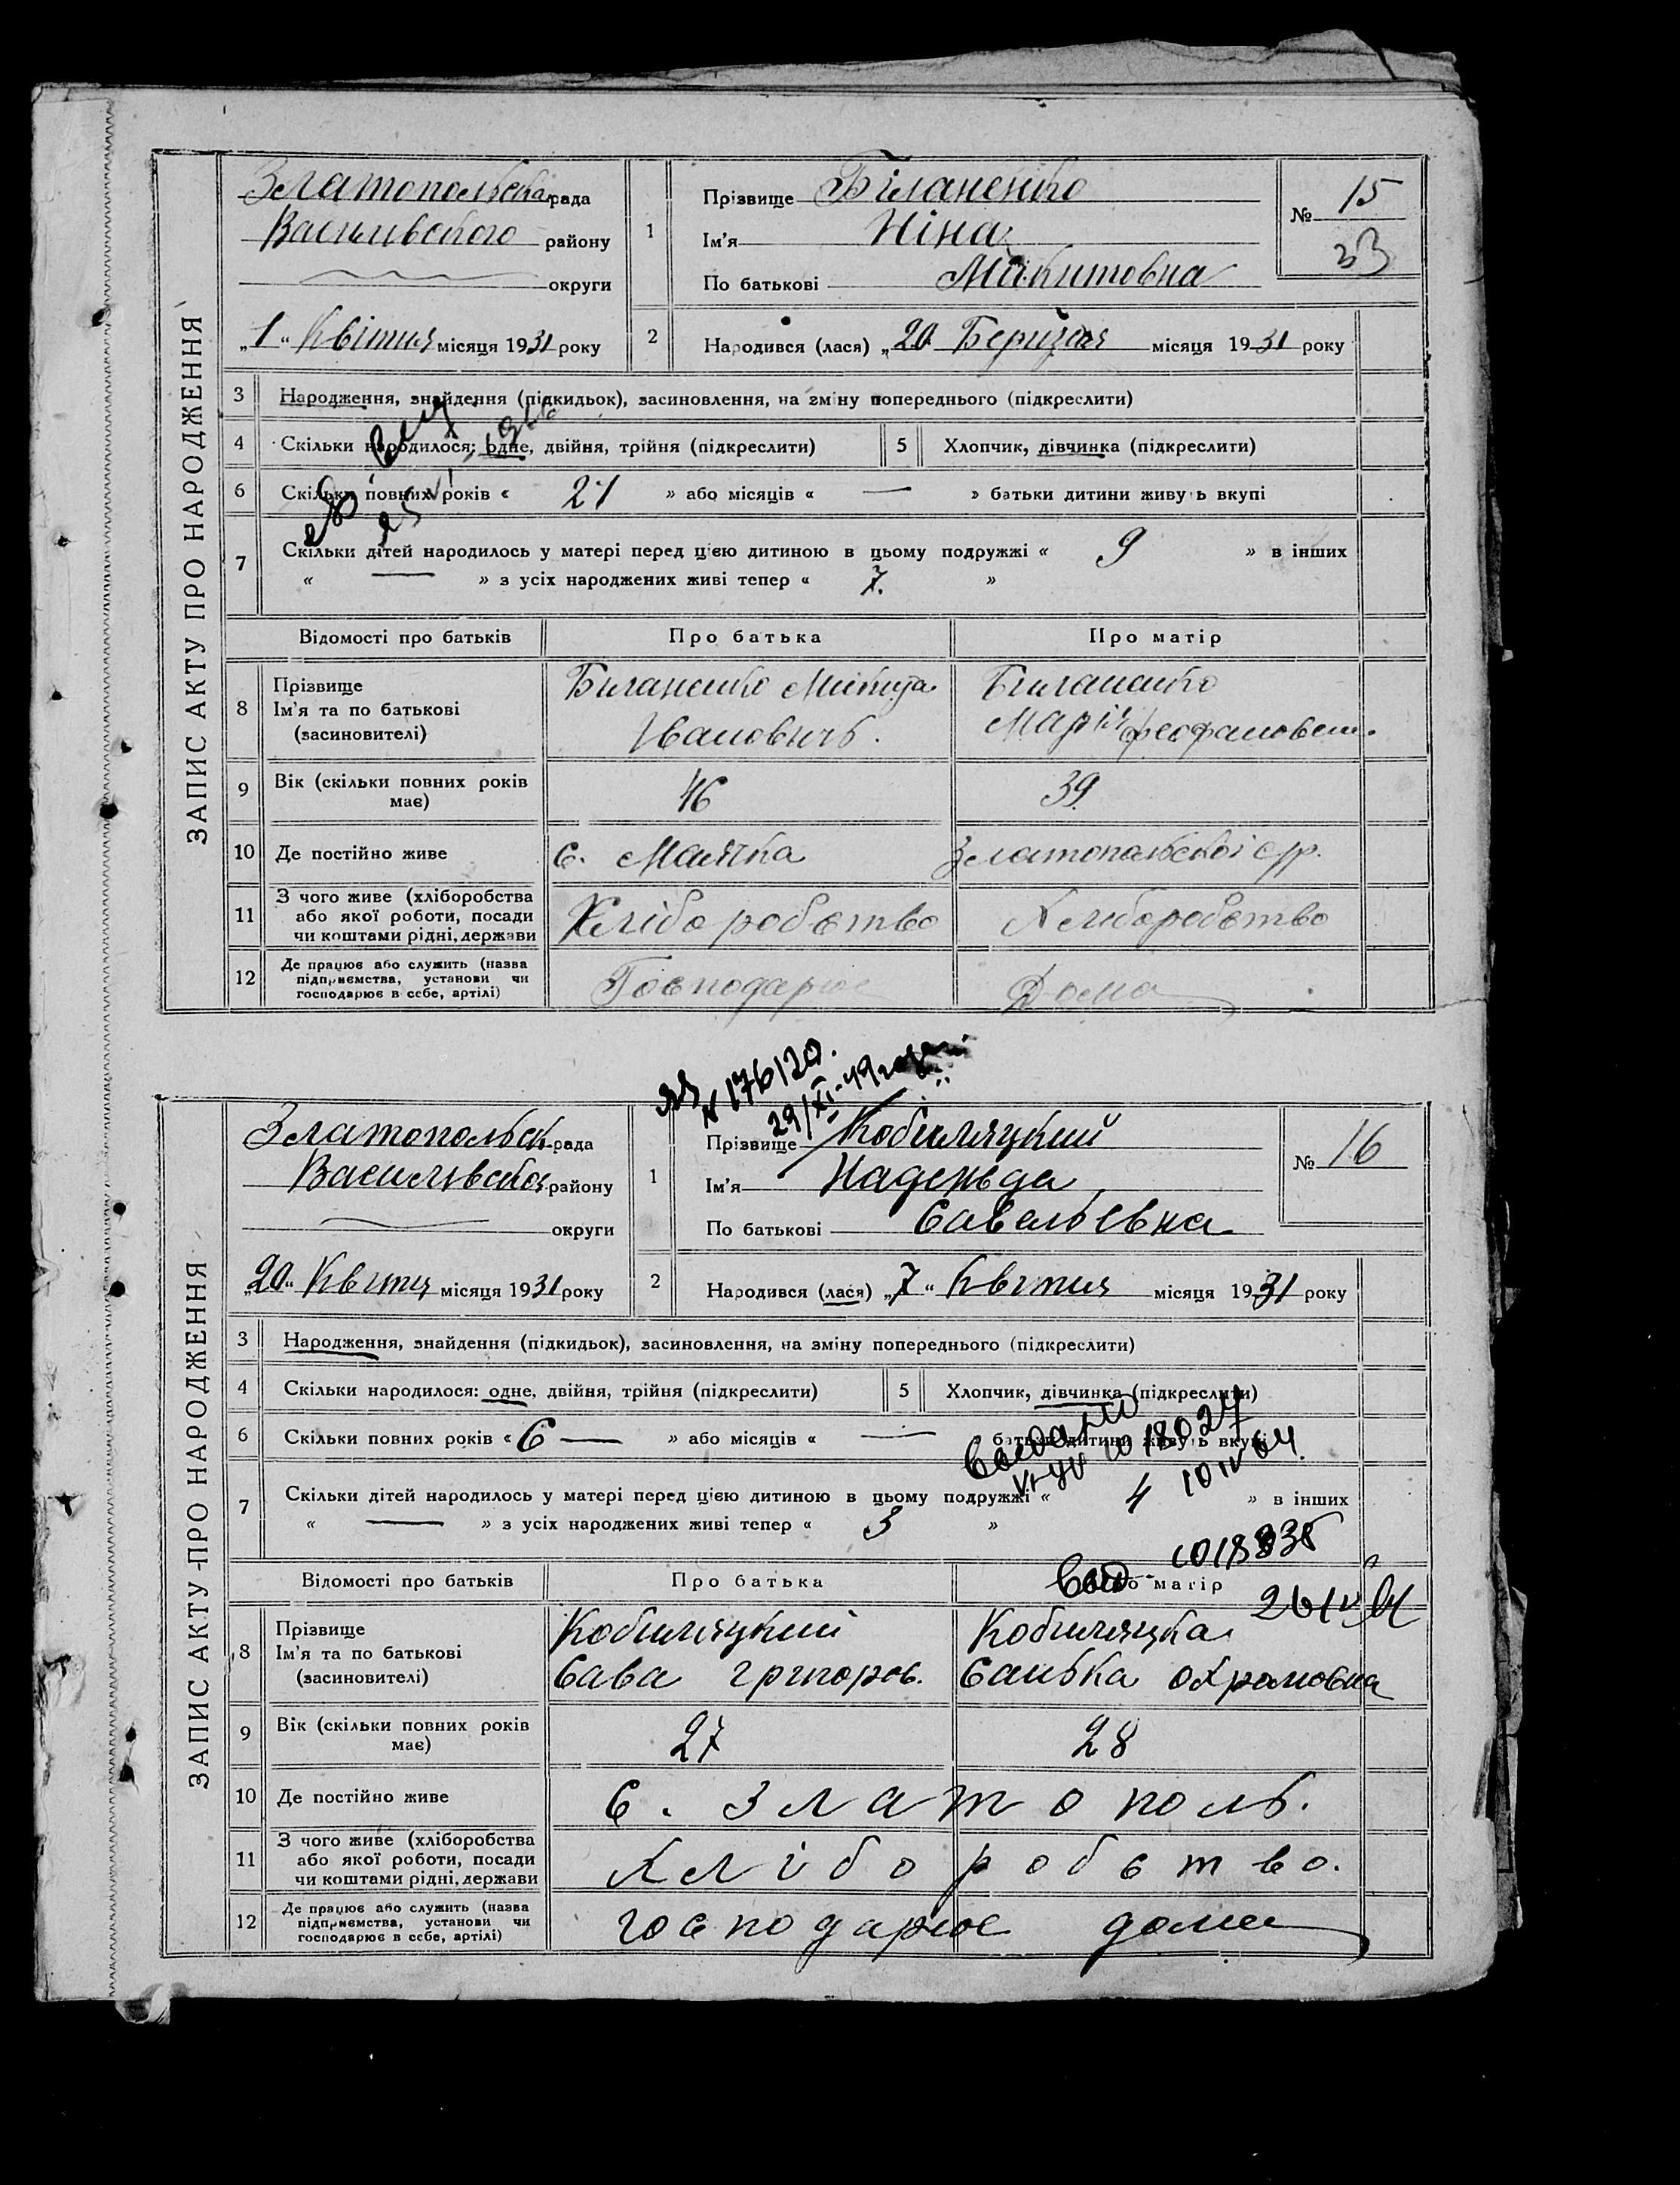 ЗАПИС АКТУ ПРО НАРОДЖЕННЯ
Златопольська рада
Василівского району
округи
„1“ Квітня місяця 1931 року
1 Прізвище Біланенко
Ім'я Ніна
По батькові Микитовна
№ 15
33
2 Народився (лася) „20 Березня місяця 1931 року
3 Народження, знайдення (підкидьок), засиновлення, на зміну попереднього (підкреслити)
4 Скільки народилося: одне, двійня, трійня (підкреслити) 5 Хлопчик, дівчинка (підкреслити)
6 Скільки повних років « 21 » або місяців « — » батьки дитини живуть вкупі
7 Скільки дітей народилось у матері перед цією дитиною в цьому подружжі « 9 » в інших
« — » з усіх народжених живі тепер « 7. »
Відомості про батьків Про батька Про матір
8 Прізвище
Ім'я та по батькові
(засиновителі)
Биланенко Микита
Івановичь.
Биланенко
Мария Феофановна.
9 Вік (скільки повних років має) 46 39
10 Де постійно живе с. Маячка Златопольської с/р.
11 З чого живе (хліборобства
або якої роботи, посади
чи коштами рідні, держави
Хліборобство Хліборобство
12 Де працює або служить (назва
підприємства, установи чи
господарює в себе, артілі)
Господарює Дома
№ 176120.
29/XI-49
ЗАПИС АКТУ ПРО НАРОДЖЕННЯ
Златопольськ. рада
Василівской району
округи
„20“ Квітня місяця 1931 року
1 Прізвище Кобиляцкий
Ім'я Надежда
По батькові Савельевна
№ 16
2 Народився (лася) „7“ Квітня місяця 1931 року
3 Народження, знайдення (підкидьок), засиновлення, на зміну попереднього (підкреслити)
4 Скільки народилося: одне, двійня, трійня (підкреслити) 5 Хлопчик, дівчинка (підкреслити)
6 Скільки повних років « 6 — » або місяців « — » батьки дитини живуть вкупі
018027
10 IV 64.
7 Скільки дітей народилось у матері перед цією дитиною в цьому подружжі « 4 » в інших
« — » з усіх народжених живі тепер « 3 »
Відомості про батьків Про батька Про матір
8 Прізвище
Ім'я та по батькові
(засиновителі)
Кобиляцкий
Сава Григоров.
Кобиляцка
Санька Охрамовна
9 Вік (скільки повних років має) 27 28
10 Де постійно живе с. Златополь.
11 З чого живе (хліборобства
або якої роботи, посади
чи коштами рідні, держави
Хліборобство.
12 Де працює або служить (назва
підприємства, установи чи
господарює в себе, артілі)
господарює дома